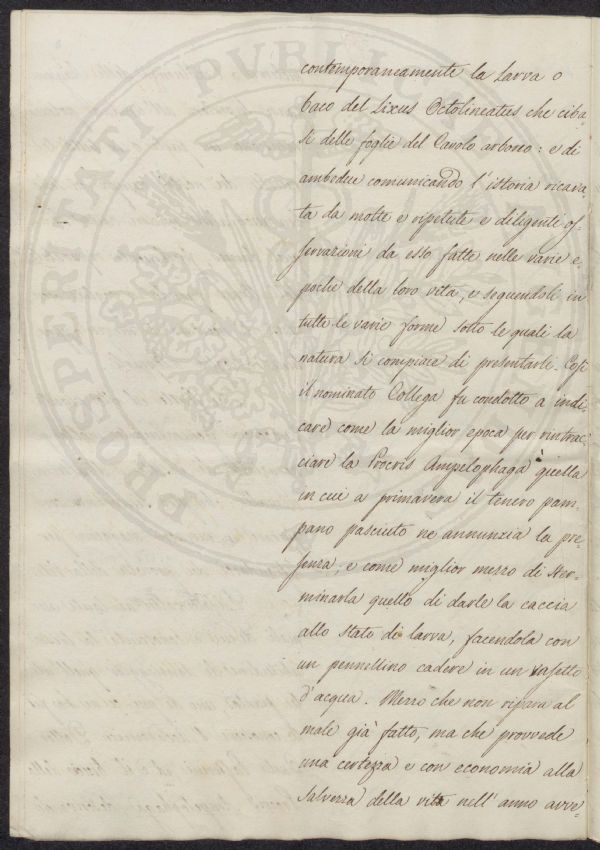 contemporaneamente la Larva o
baco del Lixus Octolineatus che ciba-
si delle foglie del Cavolo arboreo: e di
ambedue comunicando l'istoria ricava-
ta da molte e ripetute e diligenti os-
servazioni da esso fatte nelle varie e-
poche della loro vita, e seguendoli in
tutte le varie forme sotto le quali la
natura si compiace di presentarli. Così
il nominato Collega fu condotto a indi-
care come la miglior epoca per rintrac-
ciare la Procris Ampelophaga quella
in cui a primavera il tenero pam-
pano pasciuto ne annunzia la pre-
senza, e come miglior mezzo di ster-
minarla quello di darle la caccia
allo stato di larva, facendola con
un pennellino cadere in un vasetto
d'acqua. Mezzo che non ripara al
male già fatto, ma che provvede
una certezza e con economia alla
salvezza della vita nell'anno avve-
PROSPERITATI PVBLICAE